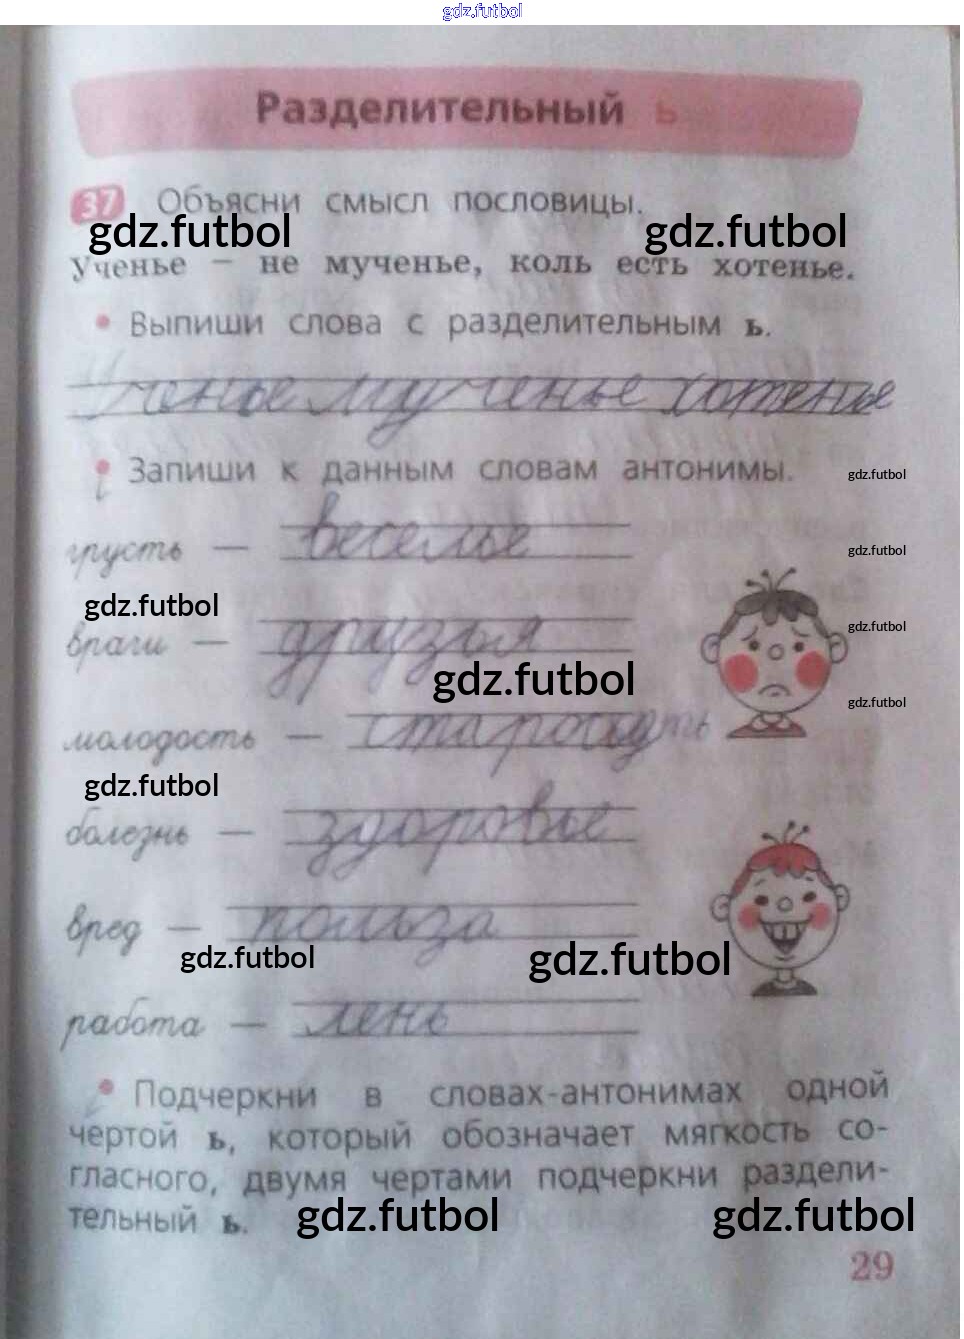 gdz.futbol
Разделительный ь
37 Объясни смысл пословицы.
gdz.futbol gdz.futbol
Ученье — не мученье, коль есть хотенье.
• Выпиши слова с разделительным ь.
Ученье мученье хотенье
• Запиши к данным словам антонимы.
gdz.futbol
грусть — веселье
gdz.futbol
gdz.futbol
враги — друзья
gdz.futbol
gdz.futbol
gdz.futbol
молодость —
gdz.futbol
болезнь — здоровье
вред — польза
gdz.futbol gdz.futbol
работа — лень
• Подчеркни в словах-антонимах одной
чертой ь, который обозначает мягкость со-
гласного, двумя чертами подчеркни раздели-
тельный ь.
gdz.futbol gdz.futbol
29